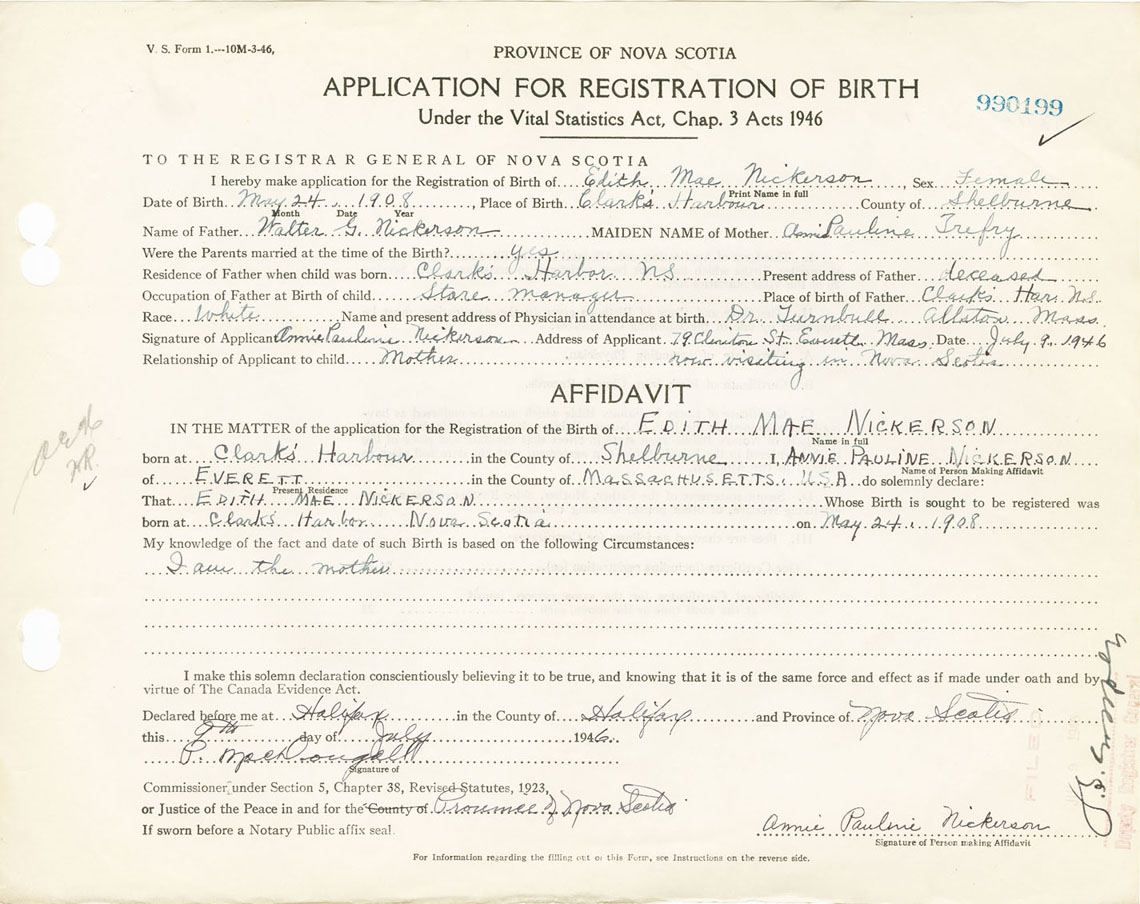 V. S. Form 1.---10M-3-46,
PROVINCE OF NOVA SCOTIA
APPLICATION FOR REGISTRATION OF BIRTH
990199
Under the Vital Statistics Act, Chap. 3 Acts 1946
TO THE REGISTRAR GENERAL OF NOVA SCOTIA
I hereby make application for the Registration of Birth of Edith Mae Nickerson, Sex Female
Print Name in full
Date of Birth May 24, 1908, Place of Birth Clark's Harbour County of Shelburne
Month Date Year
Name of Father Walter G. Nickerson MAIDEN NAME of Mother Annie Pauline Trefry
Were the Parents married at the time of the Birth? yes
Residence of Father when child was born Clark's Harbor NS Present address of Father deceased
Occupation of Father at Birth of child Store manager Place of birth of Father Clark's Har. N.S.
Race White Name and present address of Physician in attendance at birth Dr. Turnbull Allston Mass.
Signature of Applicant Annie Pauline Nickerson Address of Applicant 79 Clinton St. Everett Mass. Date July 9, 1946
Relationship of Applicant to child Mother now visiting in Nova Scotia
AFFIDAVIT
IN THE MATTER of the application for the Registration of Birth of EDITH MAE NICKERSON
Name in full
born at Clark's Harbour in the County of Shelburne I, ANNIE PAULINE NICKERSON
Name of Person Making Affidavit
of EVERETT in the County of MASSACHUSETTS, U.S.A. do solemnly declare:
Present Residence
That EDITH MAE NICKERSON Whose Birth is sought to be registered was
born at Clark's Harbor Nova Scotia on May 24, 1908
My knowledge of the fact and date of such Birth is based on the following Circumstances:
I am the mother
I make this solemn declaration conscientiously believing it to be true, and knowing that it is of the same force and effect as if made under oath and by
virtue of The Canada Evidence Act.
Declared before me at Halifax in the County of Halifax and Province of Nova Scotia
this 9th day of July 1946.
P. MacDougall
Signature of
Commissioner under Section 5, Chapter 38, Revised Statutes, 1923,
or Justice of the Peace in and for the County of Province of Nova Scotia
If sworn before a Notary Public affix seal.
Annie Pauline Nickerson
Signature of Person making Affidavit
For Information regarding the filling out of this Form, see Instructions on the reverse side.
FILED